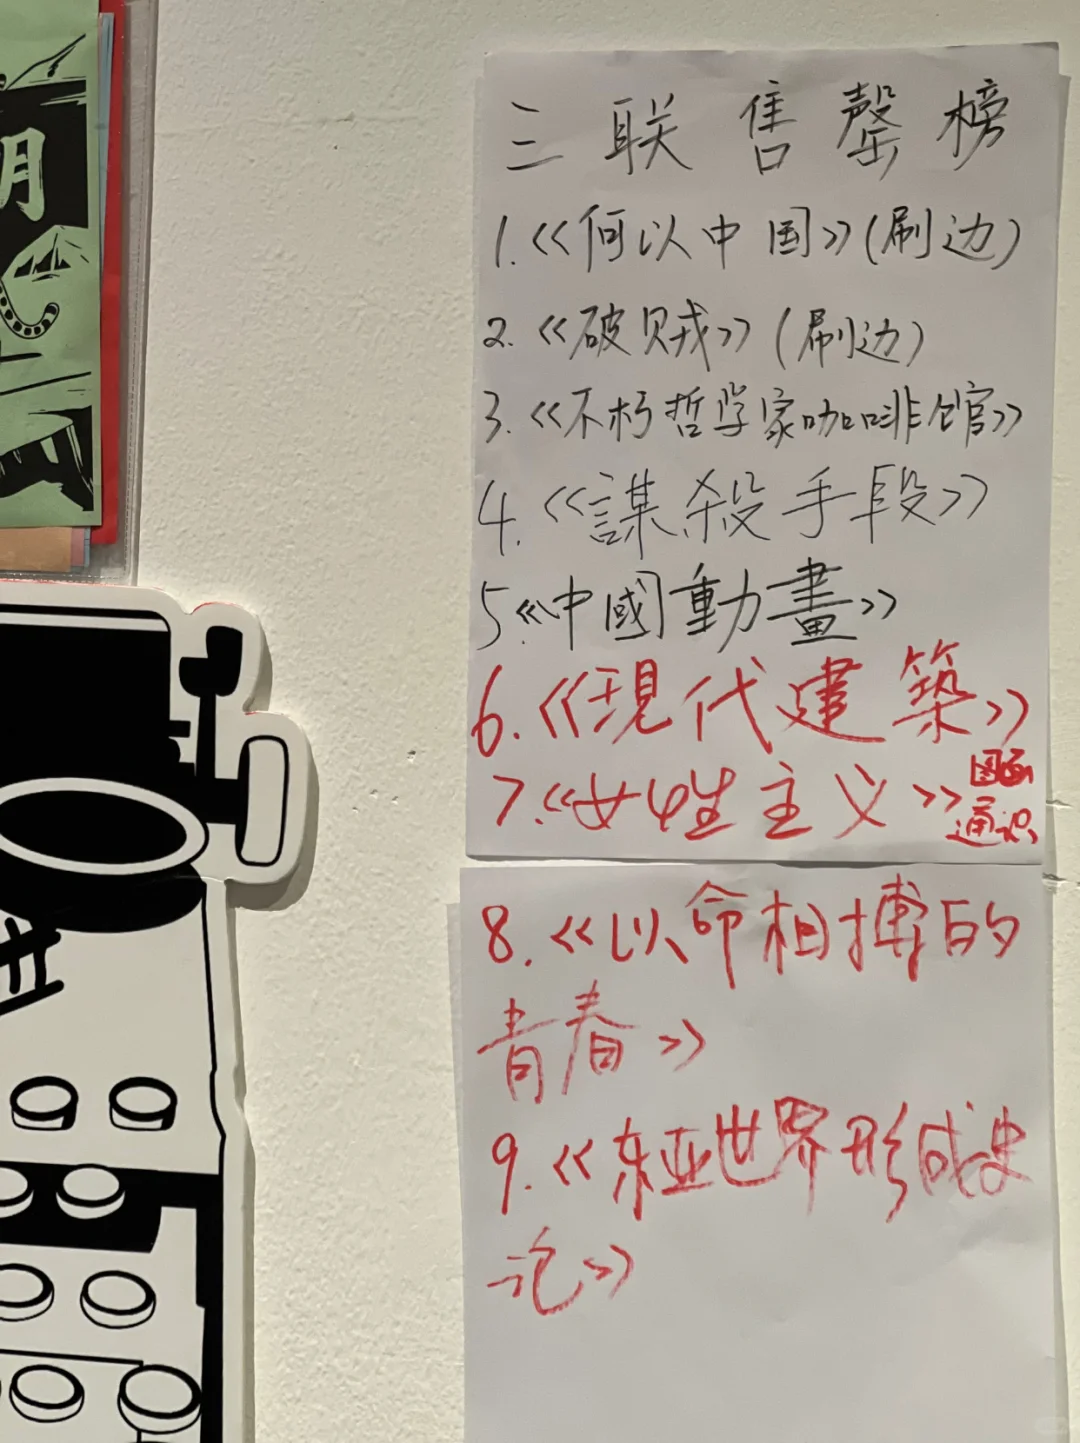 三联售罄榜
1.《何以中国》(刷边)
2.《破贼》(刷边)
3.《不朽哲学家咖啡馆》
4.《謀殺手段》
5.《中國動畫》
6.《現代建築》
7.《女性主义》图画
通识
8.《以命相搏的
青春》
9.《东亚世界形成史
论》